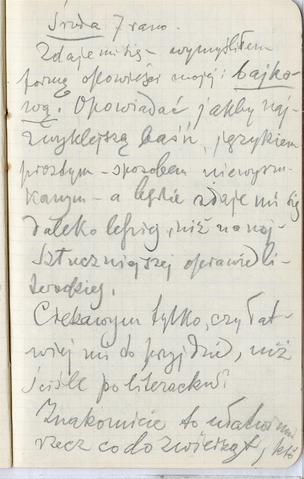 Środa 7 rano.
Zdaje mi się – wymyśliłem
formę opowieści mojej: bajko-
wą. Opowiadać jakby naj-
zwyklejszą baśń, językiem
prostym – sposobem niewyszu-
kanym – a będzie zdaje mi się
daleko lepiej, niż w naj-
sztuczniejszej oprawie li-
terackiej.
Ciekawym tylko, czy łat-
wiej mi to przyjdzie, niż
ściśle po literacku.
Znakomicie to ułatwi mi
rzecz co do zwierząt,